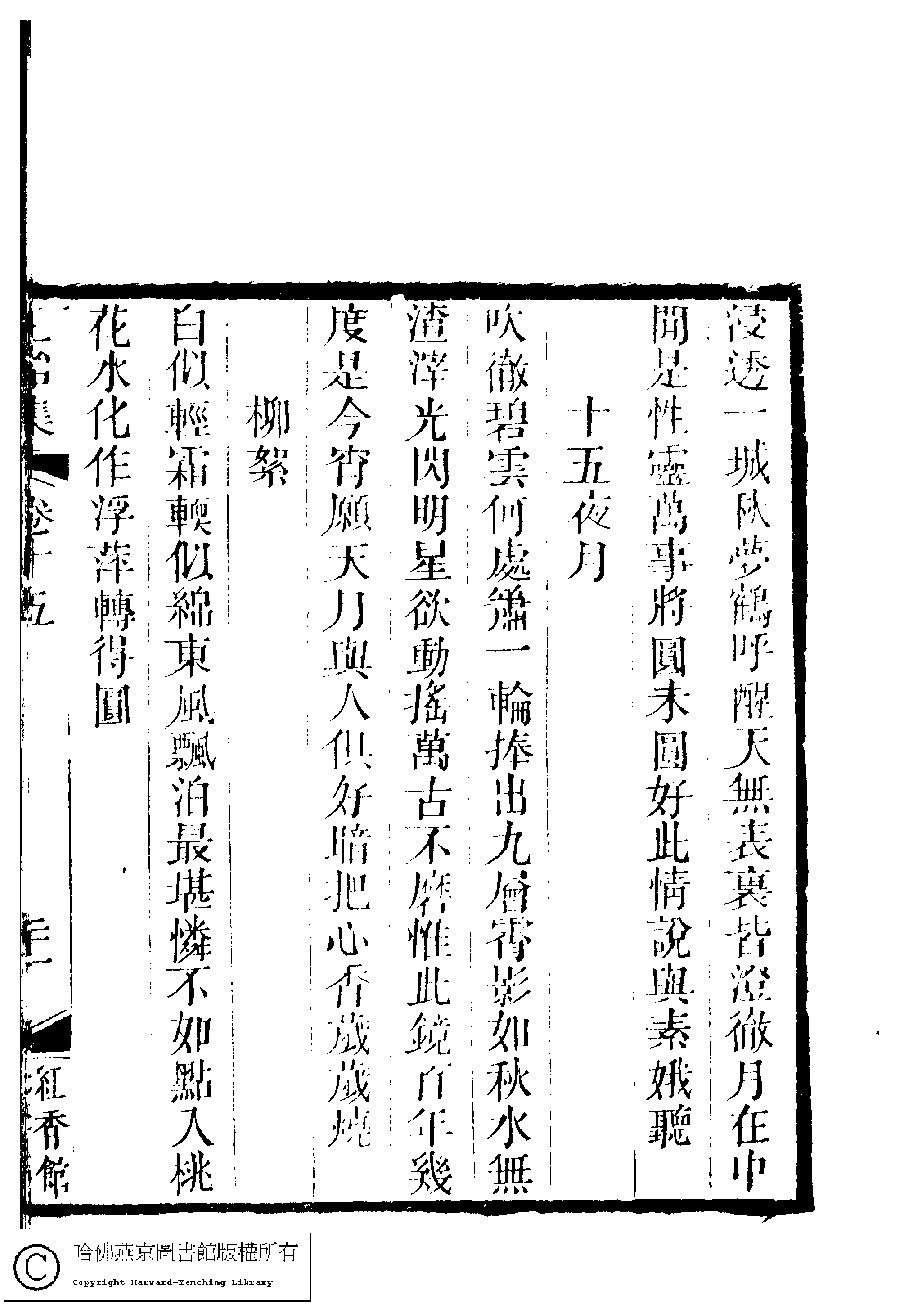 浸透一城秋夢鶴呼醒天無表裏皆澄徹月在中
間是性靈萬事將圓未圓好此情說與素娥聽
十五夜月
吹徹碧雲何處簫一輪捧出九層霄影如秋水無
渣滓光閃明星欲動搖萬古不磨惟此鏡百年幾
度是今宵願天月與人俱好暗把心香歲歲燒
柳絮
白似輕霜輭似綿東風飄泊最堪憐不如點入桃
花水化作浮萍轉得圓
集 卷十五
紅香館
哈佛燕京圖書館版權所有
Copyright Harvard-Yenching Library